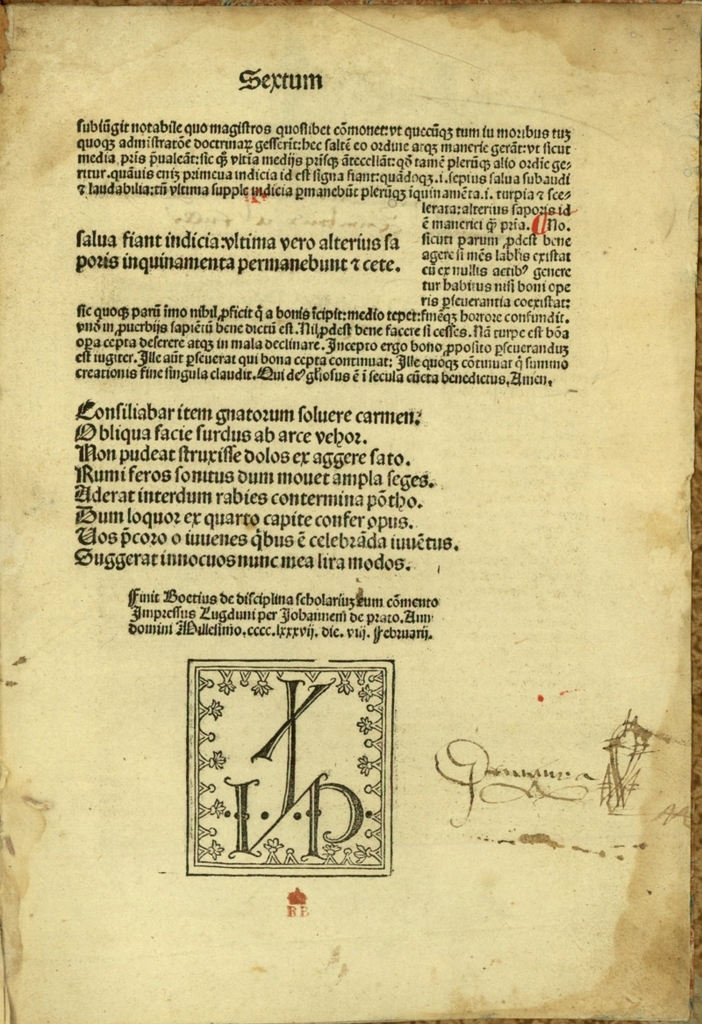 Sextum
subiūgit notabile quo magistros quoslibet cōmonet: vt quecūqꝫ tum in moribus tuꝫ
quoqꝫ admīstratōe doctrinaꝝ gesserit: hec saltē eo ordine atqꝫ manerie gerāt: vt sicut
media pris p̄ualeāt: sic ꝙ vltia medijs prisqꝫ ātecellāt: qō tamē plerūqꝫ alio ordīe ge-
ritur. quāuis eniꝫ primeua indicia id est signa fiant: quādoqꝫ .i. sepius salua subaudi
⁊ laudabilia: tū vltima supple indicia ꝑmanebūt plerūqꝫ iquinamēta .i. turpia ⁊ sce-
lerata: alterius saporis id
ē manerici ꝙ̄ pria. ¶ No.
salua fiant indicia: vltima vero alterius sa
sicuti parum ꝓdest bene
poris inquinamenta permanebunt ⁊ cete.
agere si mēs labijs existat
cū ex nullis actibꝰ genere
tur habitus nisi boni ope
ris ꝑseuerantia coexistat:
sic quoqꝫ parū īmo nihil ꝓficit q̄ a bonis īcipit: medio tepet: fineqꝫ horrore confundit.
vnō in ꝓuerbijs sapiētū bene dictū est. Nil ꝓdest bene facere si cesses. Nā turpe est bōa
oꝑa cepta deserere atqꝫ in mala declinare. Incepto ergo bono ꝓposito ꝑseuerandus
est iugiter. Ille aūt ꝑseuerat qui bona cepta continuat: Ille quoqꝫ cōtinuat q̄ summo
creationis fine singula claudit. Qui deꝰ gl̄iosus ē ī secula cūcta benedictus, Amen.
Consiliabar item gnatorum soluere carmen.
Obliqua facie surdus ab arce vehor.
Non pudeat struxisse dolos ex aggere sato.
Rumi feros sonitus dum mouet ampla seges.
Aderat interdum rabies contermina pōtho.
Dum loquor ex quarto capite confer opus.
Uos p̄coro o iuuenes q̄bus ē celebrāda iuuētus.
Suggerat innocuos nunc mea lira modos.
Finit Boetius de disciplina scholariuꝫ cum cōmento
Impressus Lugduni per Johannem de prato. Anno
domini Millesimo. cccc. lxxxvij. die. viij. februarij.
I P
RB